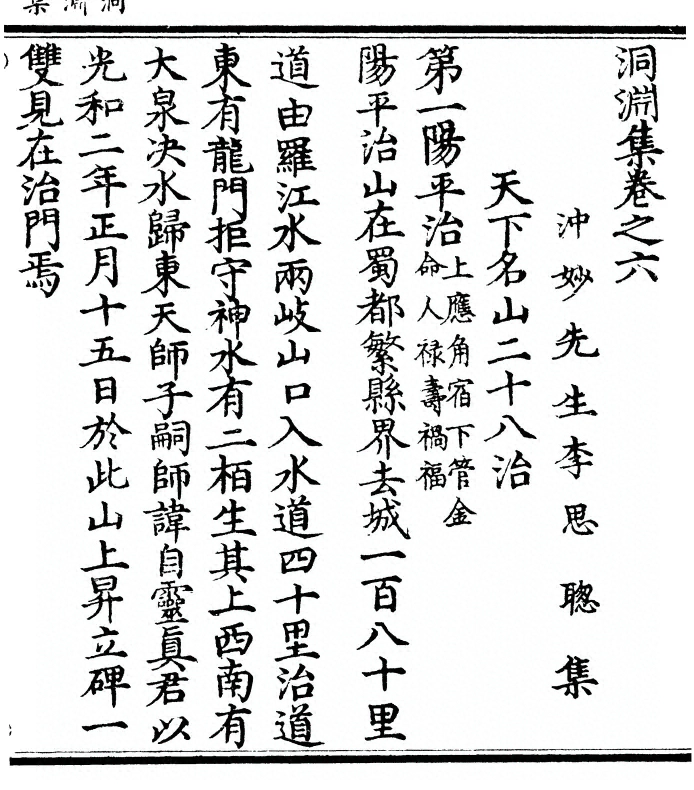 洞淵集
洞淵集卷之六
沖妙先生李思聰集
天下名山二十八治
第一陽平治上應角宿下管金
命人禄壽禍福
陽平治山在蜀都繁縣界去城一百八十里
道由羅江水兩岐山口入水道四十里治道
東有龍門拒守神水有二栢生其上西南有
大泉决水歸東天師子嗣師諱自靈真君以
光和二年正月十五日於此山上昇立碑一
雙見在治門焉